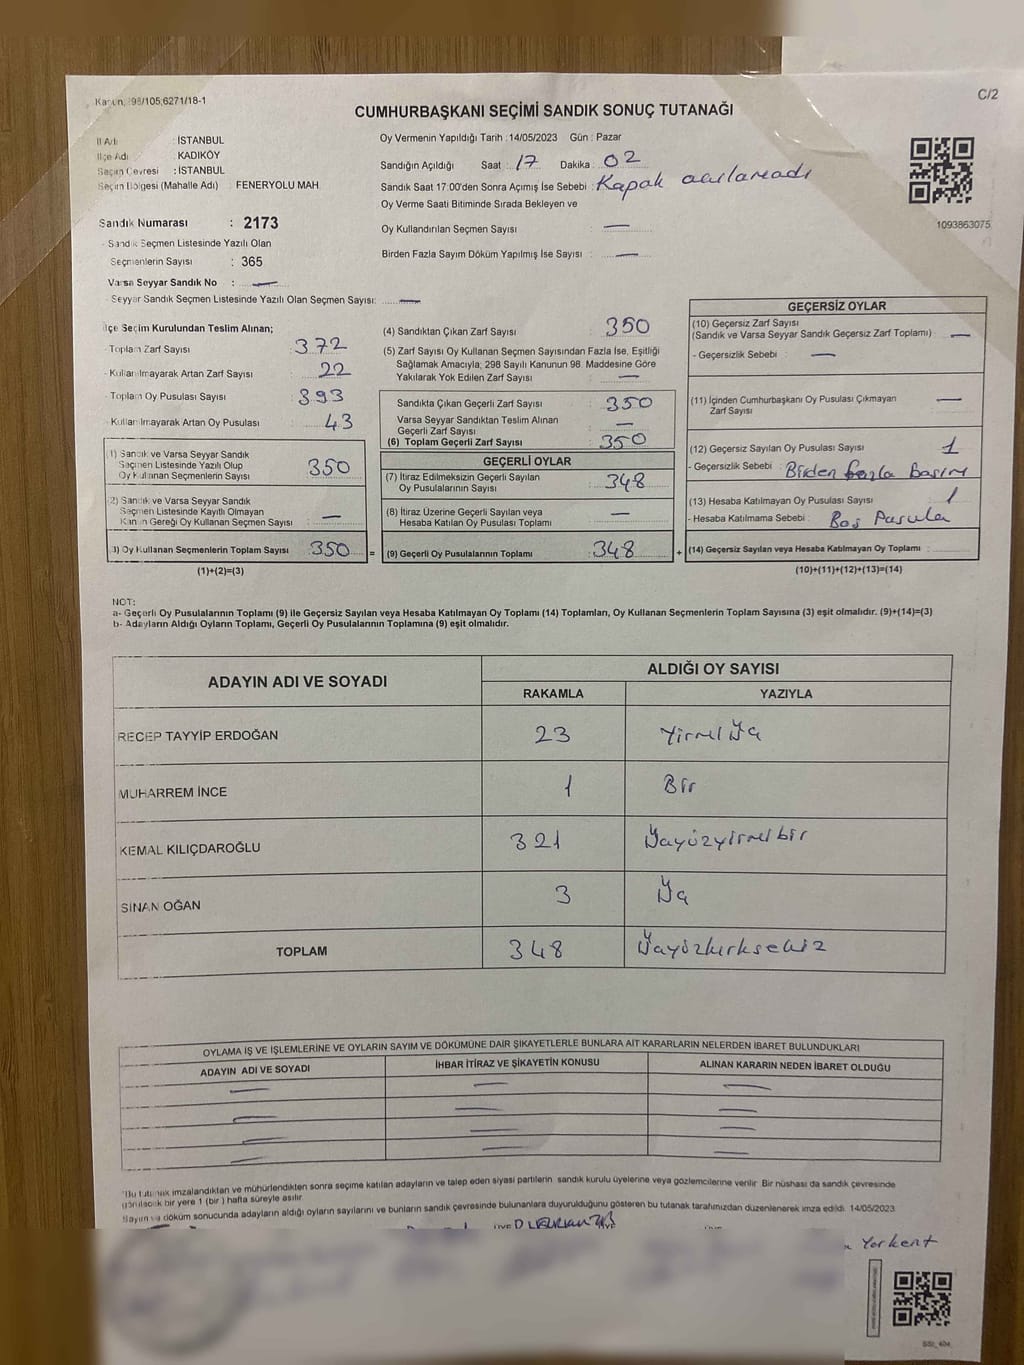 Kanun, 298/105;6271/18-1
C/2
CUMHURBAŞKANI SEÇİMİ SANDIK SONUÇ TUTANAĞI
İl Adı : İSTANBUL
İlçe Adı : KADIKÖY
Seçim Çevresi : İSTANBUL
Seçim Bölgesi (Mahalle Adı) : FENERYOLU MAH.
Sandık Numarası : 2173
- Sandık Seçmen Listesinde Yazılı Olan
Seçmenlerin Sayısı : 365
Varsa Seyyar Sandık No : —
- Seyyar Sandık Seçmen Listesinde Yazılı Olan Seçmen Sayısı: —
Oy Vermenin Yapıldığı Tarih : 14/05/2023 Gün : Pazar
Sandığın Açıldığı Saat : 17 Dakika : 02
Sandık Saat 17:00'den Sonra Açımış İse Sebebi : Kapak açılamadı
Oy Verme Saati Bitiminde Sırada Bekleyen ve
Oy Kullandırılan Seçmen Sayısı : —
Birden Fazla Sayım Döküm Yapılmış İse Sayısı : —
1093863075
İlçe Seçim Kurulundan Teslim Alınan;
- Toplam Zarf Sayısı : 372
- Kullanılmayarak Artan Zarf Sayısı : 22
- Toplam Oy Pusulası Sayısı : 393
- Kullanılmayarak Artan Oy Pusulası : 43
(1) Sandık ve Varsa Seyyar Sandık
Seçmen Listesinde Yazılı Olup
Oy Kullanan Seçmenlerin Sayısı : 350
(2) Sandık ve Varsa Seyyar Sandık
Seçmen Listesinde Kayıtlı Olmayan
Kanun Gereği Oy Kullanan Seçmen Sayısı : —
(3) Oy Kullanan Seçmenlerin Toplam Sayısı : 350 =
(1)+(2)=(3)
(4) Sandıktan Çıkan Zarf Sayısı : 350
(5) Zarf Sayısı Oy Kullanan Seçmen Sayısından Fazla İse, Eşitliği
Sağlamak Amacıyla; 298 Sayılı Kanunun 98. Maddesine Göre
Yakılarak Yok Edilen Zarf Sayısı : —
Sandıkta Çıkan Geçerli Zarf Sayısı : 350
Varsa Seyyar Sandıktan Teslim Alınan
Geçerli Zarf Sayısı : —
(6) Toplam Geçerli Zarf Sayısı : 350
GEÇERLİ OYLAR
(7) İtiraz Edilmeksizin Geçerli Sayılan
Oy Pusulalarının Sayısı : 348
(8) İtiraz Üzerine Geçerli Sayılan veya
Hesaba Katılan Oy Pusulası Toplamı : —
(9) Geçerli Oy Pusulalarının Toplamı : 348 +
GEÇERSİZ OYLAR
(10) Geçersiz Zarf Sayısı
(Sandık ve Varsa Seyyar Sandık Geçersiz Zarf Toplamı) : —
- Geçersizlik Sebebi : —
(11) İçinden Cumhurbaşkanı Oy Pusulası Çıkmayan
Zarf Sayısı : —
(12) Geçersiz Sayılan Oy Pusulası Sayısı : 1
- Geçersizlik Sebebi : Birden fazla basım
(13) Hesaba Katılmayan Oy Pusulası Sayısı : 1
- Hesaba Katılmama Sebebi : Boş Pusula
(14) Geçersiz Sayılan veya Hesaba Katılmayan Oy Toplamı :
(10)+(11)+(12)+(13)=(14)
NOT:
a- Geçerli Oy Pusulalarının Toplamı (9) ile Geçersiz Sayılan veya Hesaba Katılmayan Oy Toplamı (14) Toplamları, Oy Kullanan Seçmenlerin Toplam Sayısına (3) eşit olmalıdır. (9)+(14)=(3)
b- Adayların Aldığı Oyların Toplamı, Geçerli Oy Pusulalarının Toplamına (9) eşit olmalıdır.
ADAYIN ADI VE SOYADI
ALDIĞI OY SAYISI
RAKAMLA YAZIYLA
RECEP TAYYİP ERDOĞAN 23 Yirmi Üç
MUHARREM İNCE 1 Bir
KEMAL KILIÇDAROĞLU 321 Üçyüzyirmibir
SİNAN OĞAN 3 Üç
TOPLAM 348 Üçyüzkırksekiz
OYLAMA İŞ VE İŞLEMLERİNE VE OYLARIN SAYIM VE DÖKÜMÜNE DAİR ŞİKAYETLERLE BUNLARA AİT KARARLARIN NELERDEN İBARET BULUNDUKLARI
ADAYIN ADI VE SOYADI İHBAR İTİRAZ VE ŞİKAYETİN KONUSU ALINAN KARARIN NEDEN İBARET OLDUĞU
Bu tutanak imzalandıktan ve mühürlendikten sonra seçime katılan adayların ve talep eden siyasi partilerin sandık kurulu üyelerine veya gözlemcilerine verilir. Bir nüshası da sandık çevresinde
görülecek bir yere 1 (bir) hafta süreyle asılır.
Sayım ve döküm sonucunda adayların aldığı oyların sayılarını ve bunların sandık çevresinde bulunanlara duyurulduğunu gösteren bu tutanak tarafımızdan düzenlenerek imza edildi. 14/05/2023
Yorkent